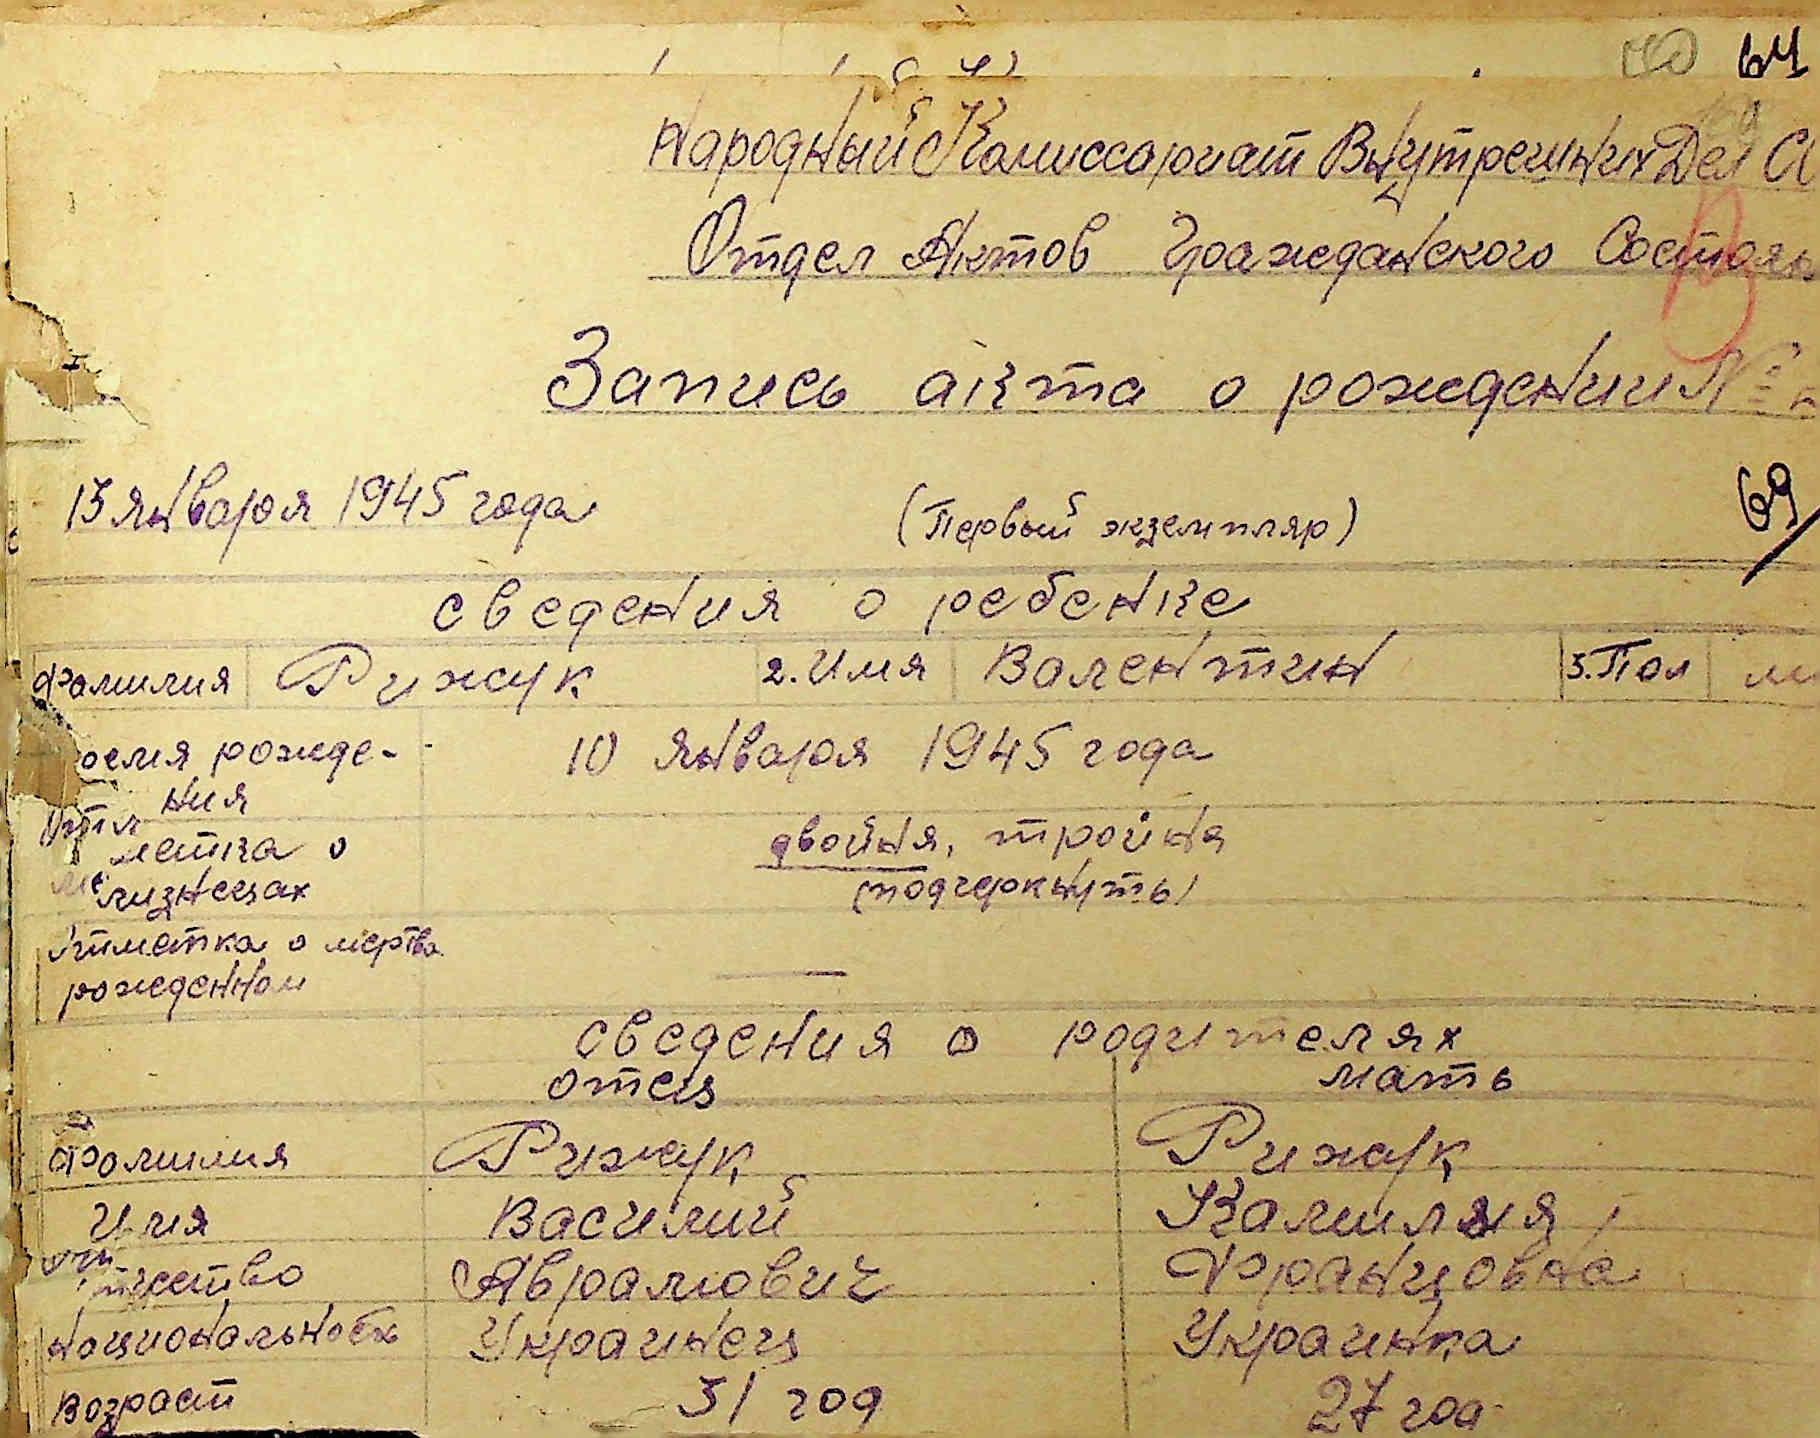 64
Народный Комиссариат Внутренних Дел С
Отдел Актов Гражданского Состоян
Запись акта о рождении №
69
13 января 1945 года (Первый экземпляр)
сведения о ребенке
Фамилия Рижук 2. Имя Валентин 3. Пол м
ремя рожде-
ния 10 января 1945 года
метка о двойня, тройня
лизнецах (подчеркнуть)
Отметка о мертво
рожденном —
сведения о родителях
отец мать
Фамилия Рижук Рижук
Имя Василий Камилия
тчество Аврамович Францовна
Национальность Украинец Украинка
Возраст 31 год 27 год